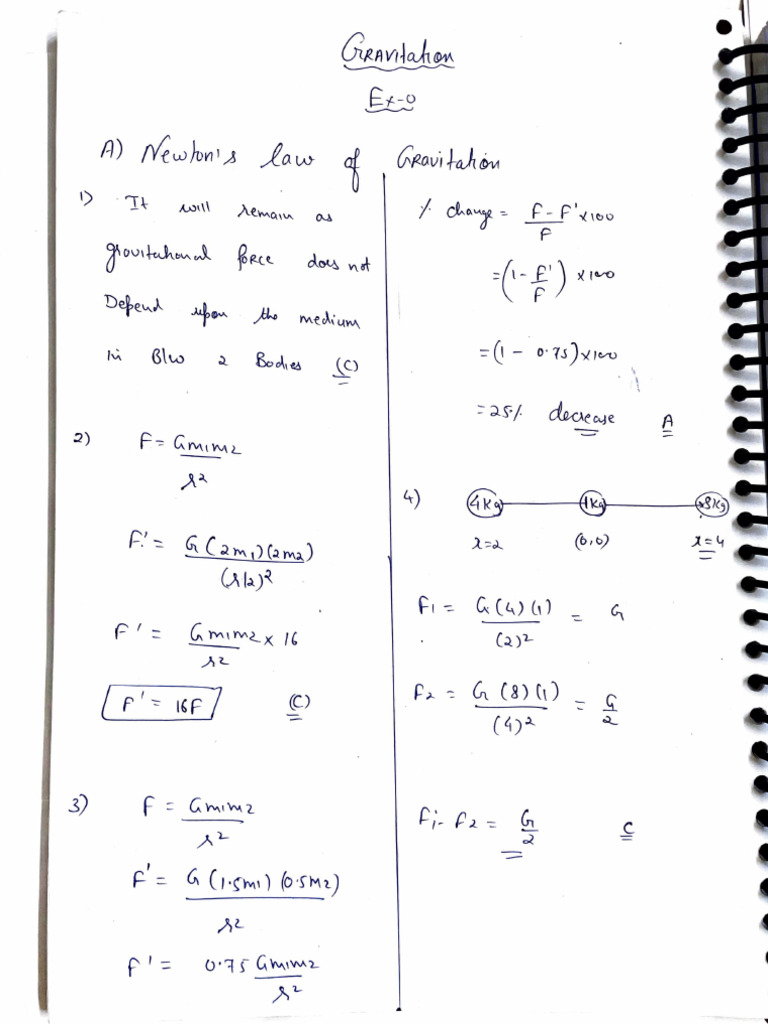 GRAVitation
Ex-0
A) Newton's law of Gravitation
1) It will remain as
gravitational force does not
Depend upon the medium
in B/w 2 Bodies (C)
2) F = Gm1m2
r2
F' = G(2m1)(2m2)
(r/2)2
F' = Gm1m2 × 16
r2
F' = 16F (C)
3) F = Gm1m2
r2
F' = G(1.5m1)(0.5m2)
r2
F' = 0.75 Gm1m2
r2
% change = F - F' × 100
F
= (1 - F') × 100
F
= (1 - 0.75) × 100
= 25% decrease A
4) 4Kg 1Kg 8Kg
x=2 (0,0) x=4
F1 = G(4)(1) = G
(2)2
F2 = G(8)(1) = G
(4)2 2
F1 - F2 = G C
2